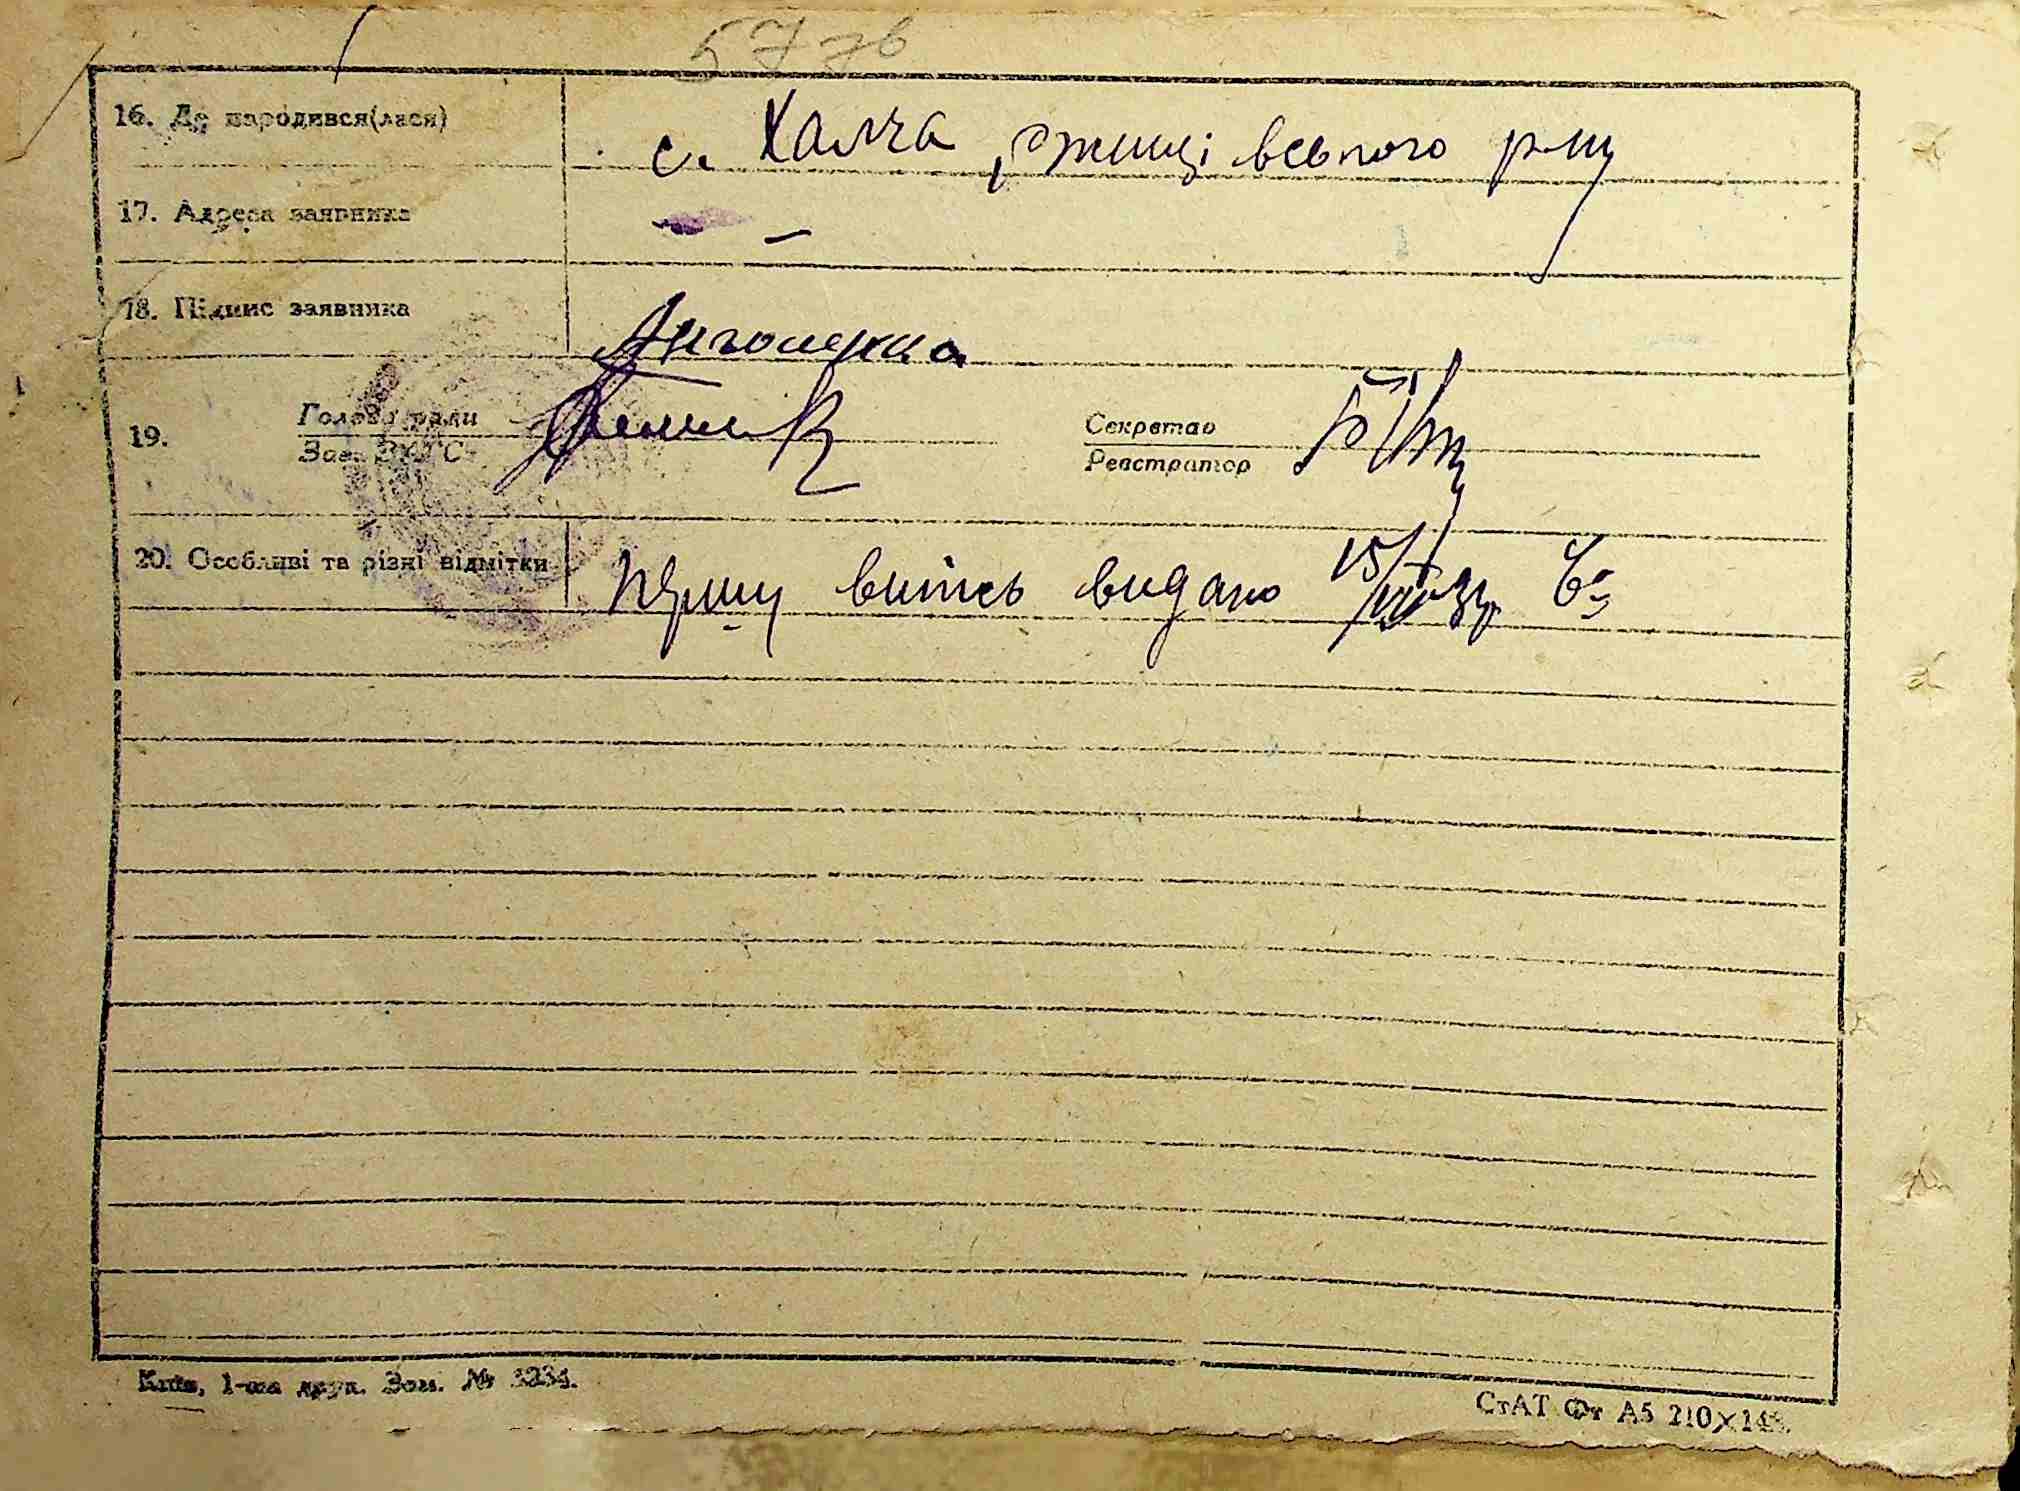 57 зв
16. Де народився(лася)
с. Халча, Ржищівського р-ну
17. Адреса заявника
—
18. Підпис заявника
19. Голова ради
Зав. ЗАГС
Секретар
Реєстратор
20. Особливі та різні відмітки
Першу витясь видано 15/VIII
Київ, 1-ша друк. Зам. № 3234.
СтАТ Фт А5 210×148.